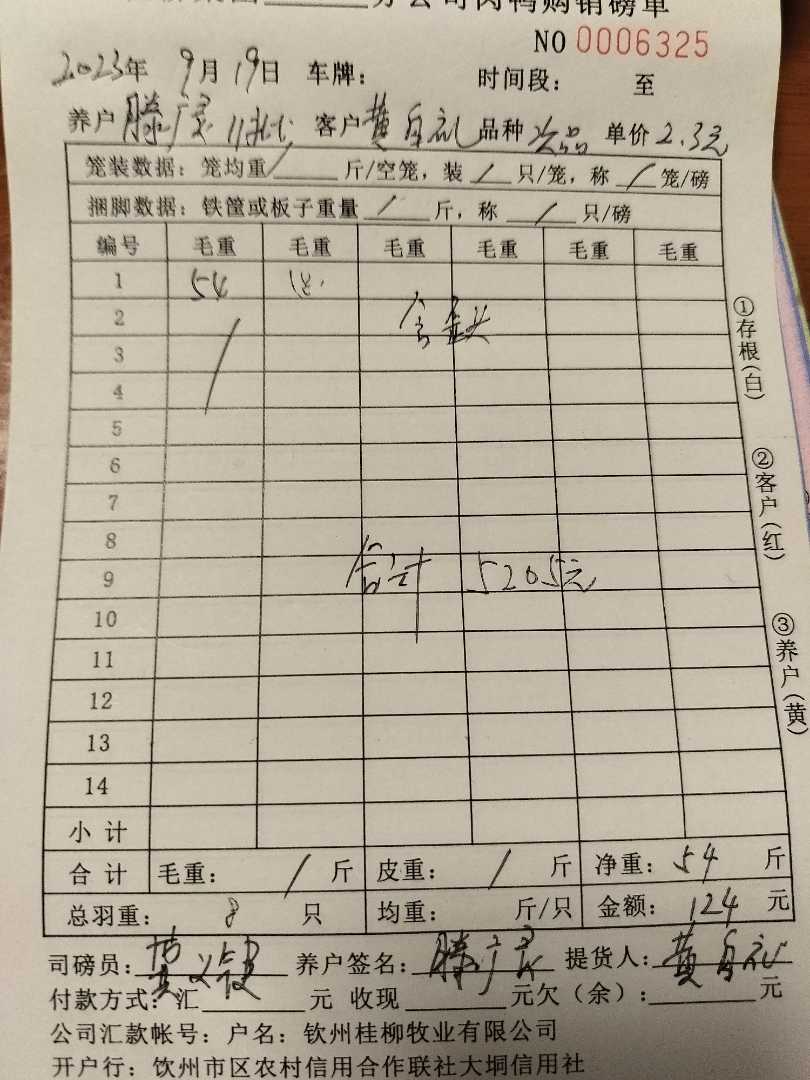 分公司肉鸭购销磅单
NO 0006325
2023年 9月19日 车牌： 时间段： 至
养户 滕广 客户 黄 礼 品种 次品 单价 2.3元
笼装数据：笼均重 / 斤/空笼，装 / 只/笼，称 / 笼/磅
捆脚数据：铁筐或板子重量 / 斤，称 / 只/磅
编号 毛重 毛重 毛重 毛重 毛重 毛重
1 54
2
3
4
5
6
7
8
9
合计 5205元
10
11
12
13
14
小计
合计 毛重： / 斤 皮重： / 斤 净重： 54 斤
总羽重： 8 只 均重： 斤/只 金额： 124 元
司磅员： 黄 养户签名： 滕广 提货人： 黄 礼
付款方式：汇 元 收现 元欠（余）： 元
公司汇款帐号：户名：钦州桂柳牧业有限公司
开户行：饮州市区农村信用合作联社大垌信用社
①存根(白)
②客户(红)
③养户(黄)